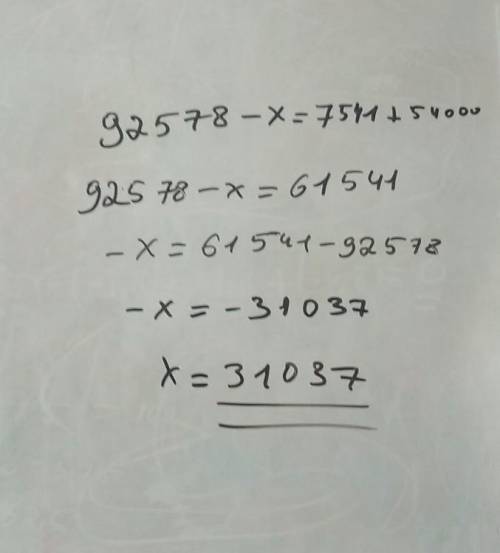 92578 - x = 7541 + 54000
92578 - x = 61541
- x = 61541 - 92578
- x = - 31037
x = 31037